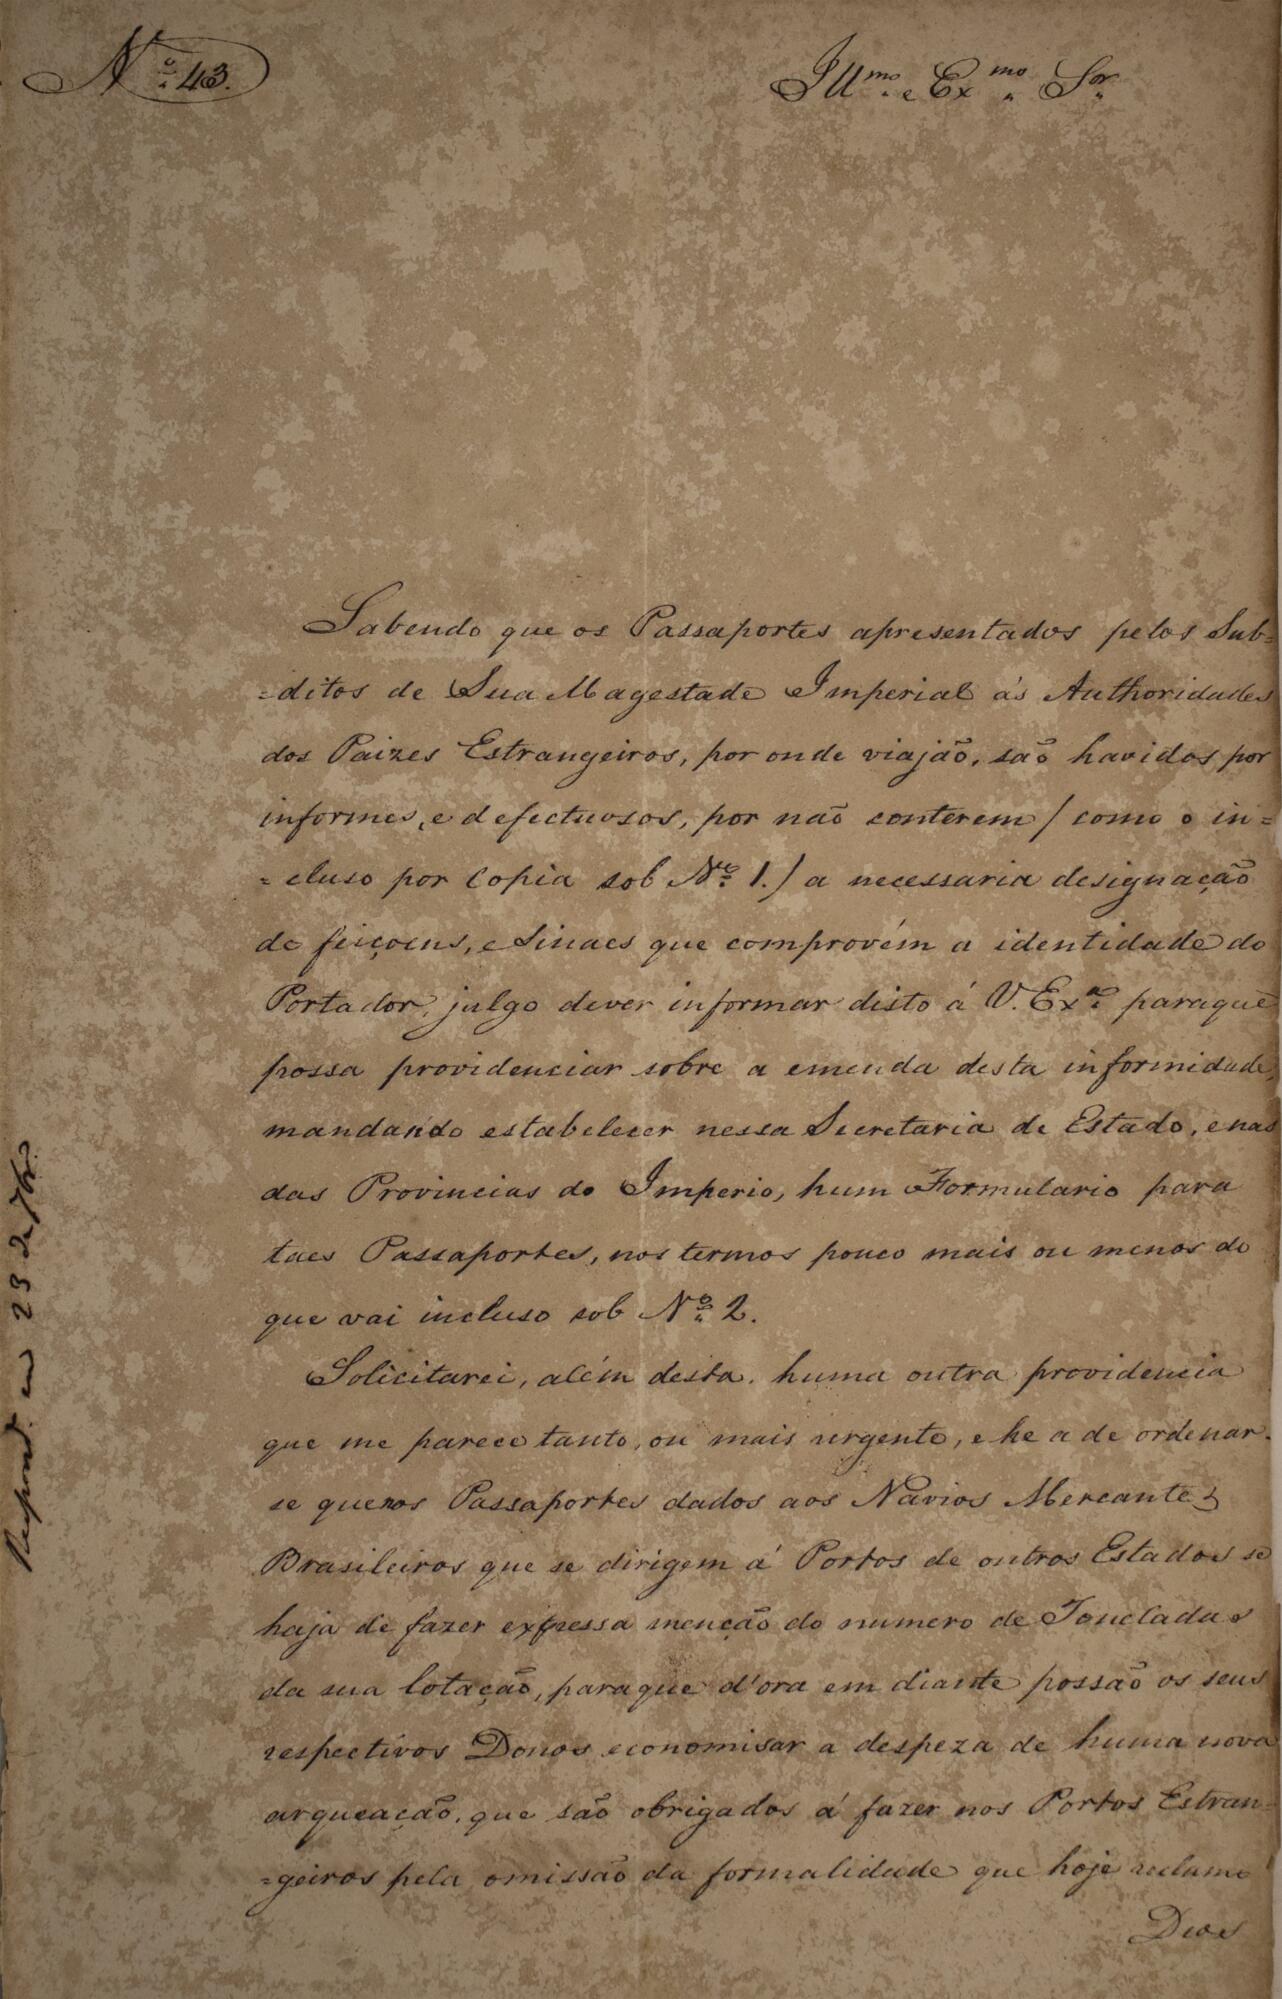 Nº 43.
Illmo e Exmo Sor
Sabendo que os Passaportes apresentados pelos Sub=
=ditos de Sua Magestade Imperial ás Authoridades
dos Paizes Estrangeiros, por onde viajão, são havidos por
informes, e defectuosos, por não conterem / como o in=
=cluso por Copia sob Nº 1. / a necessaria designação
de feiçoens, e Sinaes que comprovém a identidade do
Portador, julgo dever informar disto á V. Exa paraque
possa providenciar sobre a emenda desta informidade,
mandando estabelecer nessa Secretaria de Estado, e nas
das Provincias do Imperio, hum Formulario para
taes Passaportes, nos termos pouco mais ou menos do
que vai incluso sob Nº 2.
Solicitarei, além desta, huma outra providencia
que me parece tanto, ou mais urgente, e he a de ordenar-
se que nos Passaportes dados aos Navios Mercantes
Brasileiros que se dirigem á Portos de outros Estados se
haja de fazer expressa menção do numero de Toneladas
da sua lotação, paraque d'ora em diante possão os seus
respectivos Donos economisar a despeza de huma nova
arqueação, que são obrigados á fazer nos Portos Estran=
=geiros pela omissão da formalidade que hoje reclamo
Deos
Respond. em 23 de 7br.